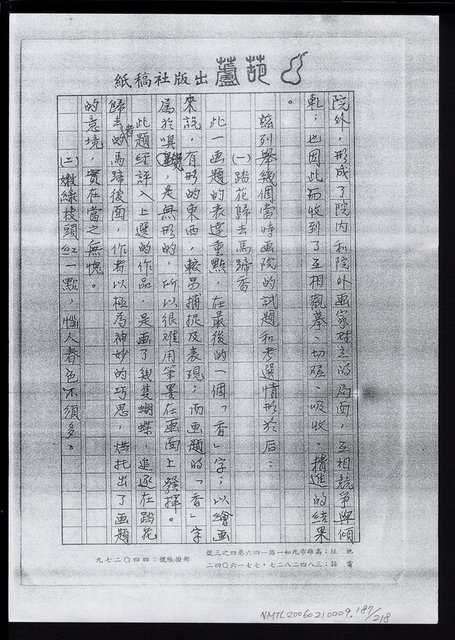 葫蘆出版社稿紙
院外，形成了院內和院外畫家對立的局面，互相競爭與傾
軋；也因此而收到了互相觀摹、切磋、吸收、精進的結果
。
茲列舉幾個當時畫院的試題和考選情形於后：
㈠踏花歸去馬蹄香
此一畫題的表達重點，在最後的一個「香」字；以繪畫
來說，有形的東西，較易捕捉及表現；而畫題的「香」字
屬於嗅覺，是無形的，所以很難用筆墨在畫面上發揮。
此題經評入上選的作品，是畫了幾隻蝴蝶，追逐在踏花
歸去者的馬蹄後面，作者以極為神妙的巧思，烘托出了畫題
的意境，實在當之無愧。
㈡嫩綠枝頭紅一點，惱人春色不須多。
地址：高雄市九如一路一四六巷四之三號
電話：三八四二八二七．七七一六〇四二
郵撥帳號：四四〇二七九
NMTL20060210009. 187/218